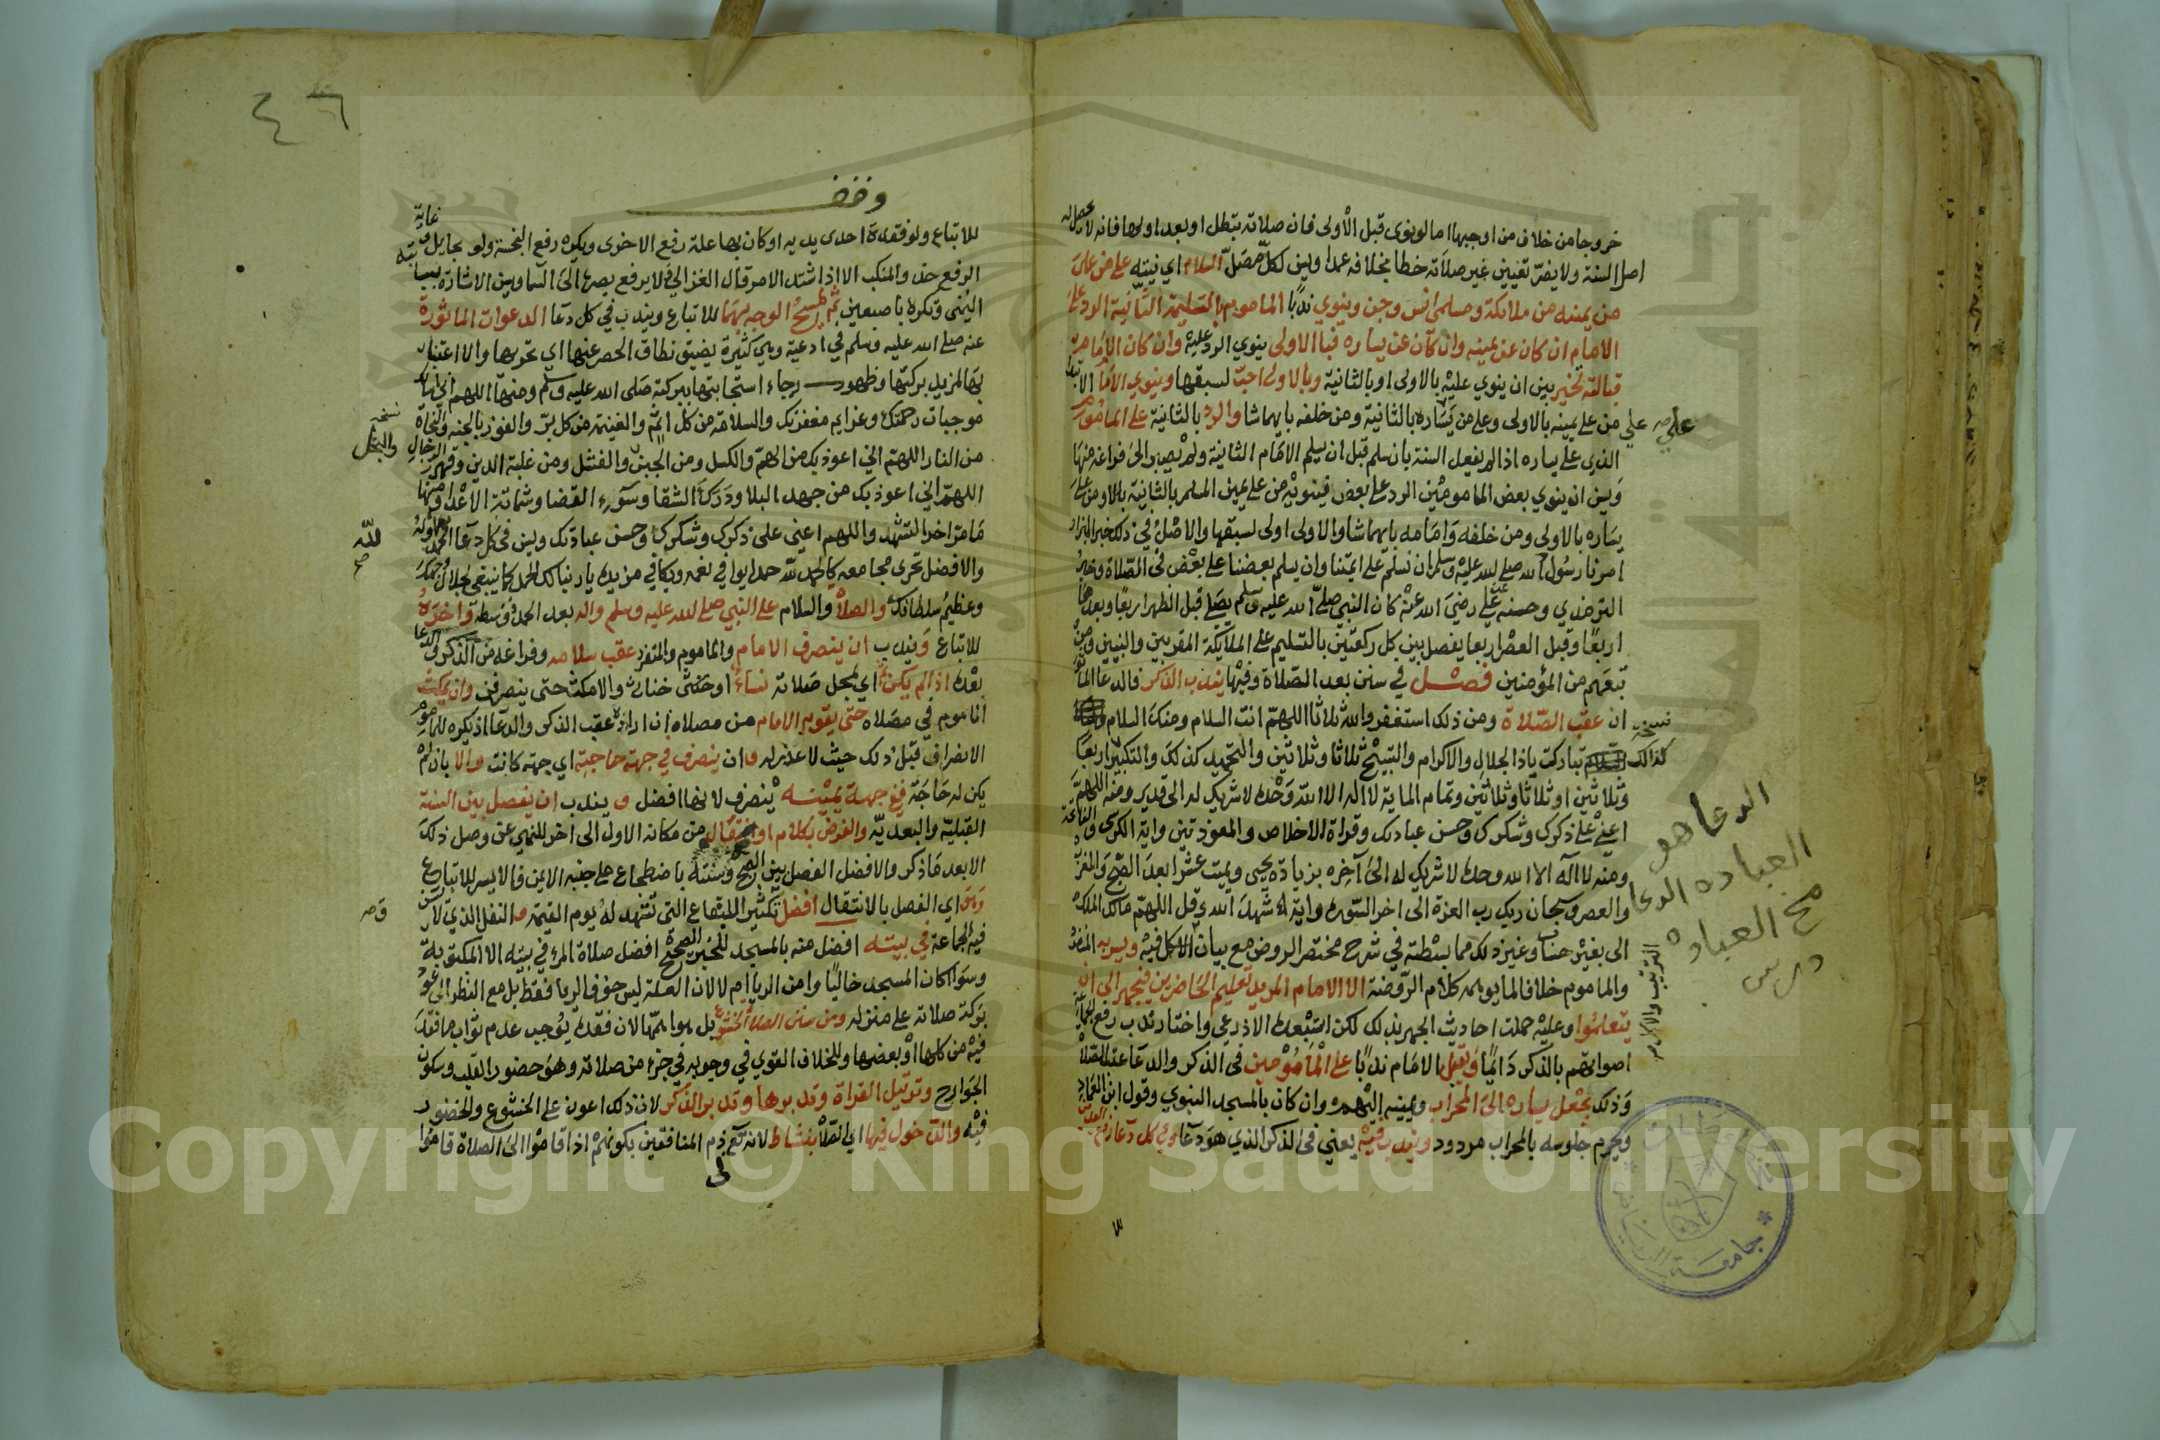 خروجا من خلاف من اوجبها اما لو نوى قبل الأولى فان صلاته تبطل او بعد اولها فانه لا يحصل له
اصل السنة ولا يضر تعيين غير صلاته خطا بخلافه عمدا وسن لكل مصل السلام اي نيته على من على
من يمينه من ملائكة ومسلمي انس وجن وينوي ندبا الماموم بالتسليمة الثانية الرد على
الامام ان كان عن يمينه وان كان عن يساره فبالاولى ينوي الرد عليه وان كان الامام
قبالته تخير بين ان ينوي عليه بالاولى او بالثانية وبالاولى احب لسبقها وينوي الامام الابتدا
علي من على يمينه بالاولى وعلى من يساره بالثانية ومن خلفه بايهما شا والرد بالثانية على الماموم
الذي على يساره اذا لم يفعل السنة بان سلم قبل ان يسلم الامام الثانية ولم يصبر الى فراغه منها
وسن ان ينوي بعض المامومين الرد على بعض فينويه من على يمين المسلم بالثانية بالاولى ومن على
يساره بالاولى ومن خلفه وامامه بايهما شا والاولى اولى لسبقها والاصل في ذلك خبر البزار
امرنا رسول الله صلى الله عليه وسلم ان نسلم على ائمتنا وان يسلم بعضنا على بعض في الصلاة وخبر
الترمذي وحسنه عن علي رضي الله عنه كان النبي صلى الله عليه وسلم يصلي قبل الظهر اربعا وبعدها
اربعا وقبل العصر اربعا يفصل بين كل ركعتين بالتسليم على الملايكة المقربين والنبيين ومن
تبعهم من المؤمنين فصل في سنن بعد الصلاة وفيها يندب الذكر فالدعا الماثو
ان عقب الصلاة ومن ذلك استغفر والله ثلاثا اللهم انت السلام ومنك السلام
تباركت ياذا الجلال والاكرام والتسبيح ثلاثا وثلاثين والتحميد كذلك والتكبير اربعا
وثلاثين او ثلاثا وثلاثين وتمام الماية لا اله الا الله وحده لا شريك له الى قدير ومنه اللهم
اعني على ذكرك وشكرك وحسن عبادتك وقراة الاخلاص والمعوذتين واية الكرسي والفاتحة
ومنه لا اله الا الله وحده لا شريك له الى آخره بزيادة يحيى ويميت عشرا بعد الصبح والمغرب
والعصر وسبحان ربك رب العزة الى اخر السورة واية شهد الله وقل اللهم مالك الملك
الى بغير حساب وغير ذلك مما بسطته في شرح مختصر الروض مع بيان الاكمل فيه ويسر به المنفرد
والماموم خلافا لما يوهمه كلام الروضة الا الامام المريد تعليم الحاضرين فيجهر الى ان
يتعلموا وعليه حملت احاديث الجهر بذلك لكن استبعده الاذرعي واختار ندب رفع الجماعة
اصواتهم بالذكر دايما ويقبل الامام ندبا على المامومين في الذكر والدعا عقب الصلاة
وذلك بجعل يساره الى المحراب ويمينه اليهم وان كان بالمسجد النبوي وقول ابن العماد
ويحرم جلوسه بالمحراب مردود ويندب فيه يعني في الذكر الذي هو دعا وفي كل دعا رفع اليدين
نسخه
كذلك
الدعا هو
العباده الدعا
مخ العباده
الترتيب والاكمل
جامعة الرياض
٤٦
وقف
للاتباع ولو فقدت احدى يديه او كان بها علة رفع الاخرى ويكره رفع النجسة ولو بحايل وغاية
الرفع حذو المنكب الا اذا اشتد الامر قال الغزالي ولا يرفع بصره الى السما وسن الاشارة بسبابته
اليمنى وتكره باصبعين ثم مسح الوجه بهما للاتباع ويندب في كل دعا الدعوات الماثورة
عنه صلى الله عليه وسلم في ادعيته وهي كثيرة يضيق نطاق الحصر عنها اي تحريها والاعتنا
بها لمزيد بركتها وظهور رجاء استجابتها ببركة صلى الله عليه وسلم ومنها اللهم اني اسالك
موجبات رحمتك وعزايم مغفرتك والسلامة من كل اثم والغنيمة من كل بر والفوز بالجنه والنجاة
من النار اللهم اني اعوذ بك من الهم والكسل ومن الجبن والفشل ومن غلبة الدين وقهر الرجال
اللهم اني اعوذ بك من جهد البلا ودرك الشقا وسوء القضا وشماتة الاعدا ومنها
ما مر اخر التشهد واللهم اعني على ذكرك وشكرك وحسن عبادتك وسن في كل دعا الحمد اوله
والافضل تحري مجامعه كالحمد لله حمدا يوافي نعمه ويكافي مزيده يا ربنا لك الحمد كما ينبغي لجلال وجهك
وعظيم سلطانك والصلاة والسلام على النبي صلى الله عليه وسلم واله بعد الحمد ووسطه واخره
للاتباع ويندب ان ينصرف الامام والماموم والمنفرد عقب سلامه وفراغه من الذكر والدعا
بعده اذا لم يكن ثم اي بمحل صلاته نساء او خنثى خناثى والا مكث حتى ينصرفن وان يمكث
الماموم في مصلاه حتى يقوم الامام من مصلاه ان اراده عقب الذكر والدعا اذ يكره للماموم
الانصراف قبل ذلك حيث لا عذر له وان ينصرف في جهة حاجته اي جهة كانت والا بان لم
يكن له حاجة ففي جهة يمينه ينصرف لانها افضل ويندب ان يفصل بين السنة
القبلية والبعدية والفرض بكلام او انتقال من مكانه الاول الى اخر للنهي عن وصل ذلك
الا بعد ما ذكر والافضل الفصل بين الصبح وسنته باضطجاع على جنبه الايمن فالايسر للاتباع
وهو اي الفصل بالانتقال افضل تكثيرا للبقاع التي تشهد له يوم القيمة والنفل الذي لا تسن
فيه الجماعة في بيته افضل منه بالمسجد للخبر الصحيح افضل صلاة المرء في بيته الا المكتوبة
وسوا كان المسجد خاليا وامن الريا ام لا لان العلة ليس خوف الريا فقط بل مع النظر الى عود
بركة صلاته على منزله ومن سنن الصلاة الخشوع بل هو اهمها لان فقده يوجب عدم ثواب ما فقد
فيه من كلها او بعضها وللخلاف القوي في وجوبه في جزء من صلاته وهو حضور القلب وسكون
الجوارح وترتيل القراة وتدبرها وتدبر الذكر لان ذلك اعون على الخشوع والحضور
فيه والدخول فيها اي الصلاة بنشاط لانه تع ذم المنافقين بكونهم اذا قاموا الى الصلاة قاموا
نسخه
والبخل
لله
صح
Copyright © King Saud University